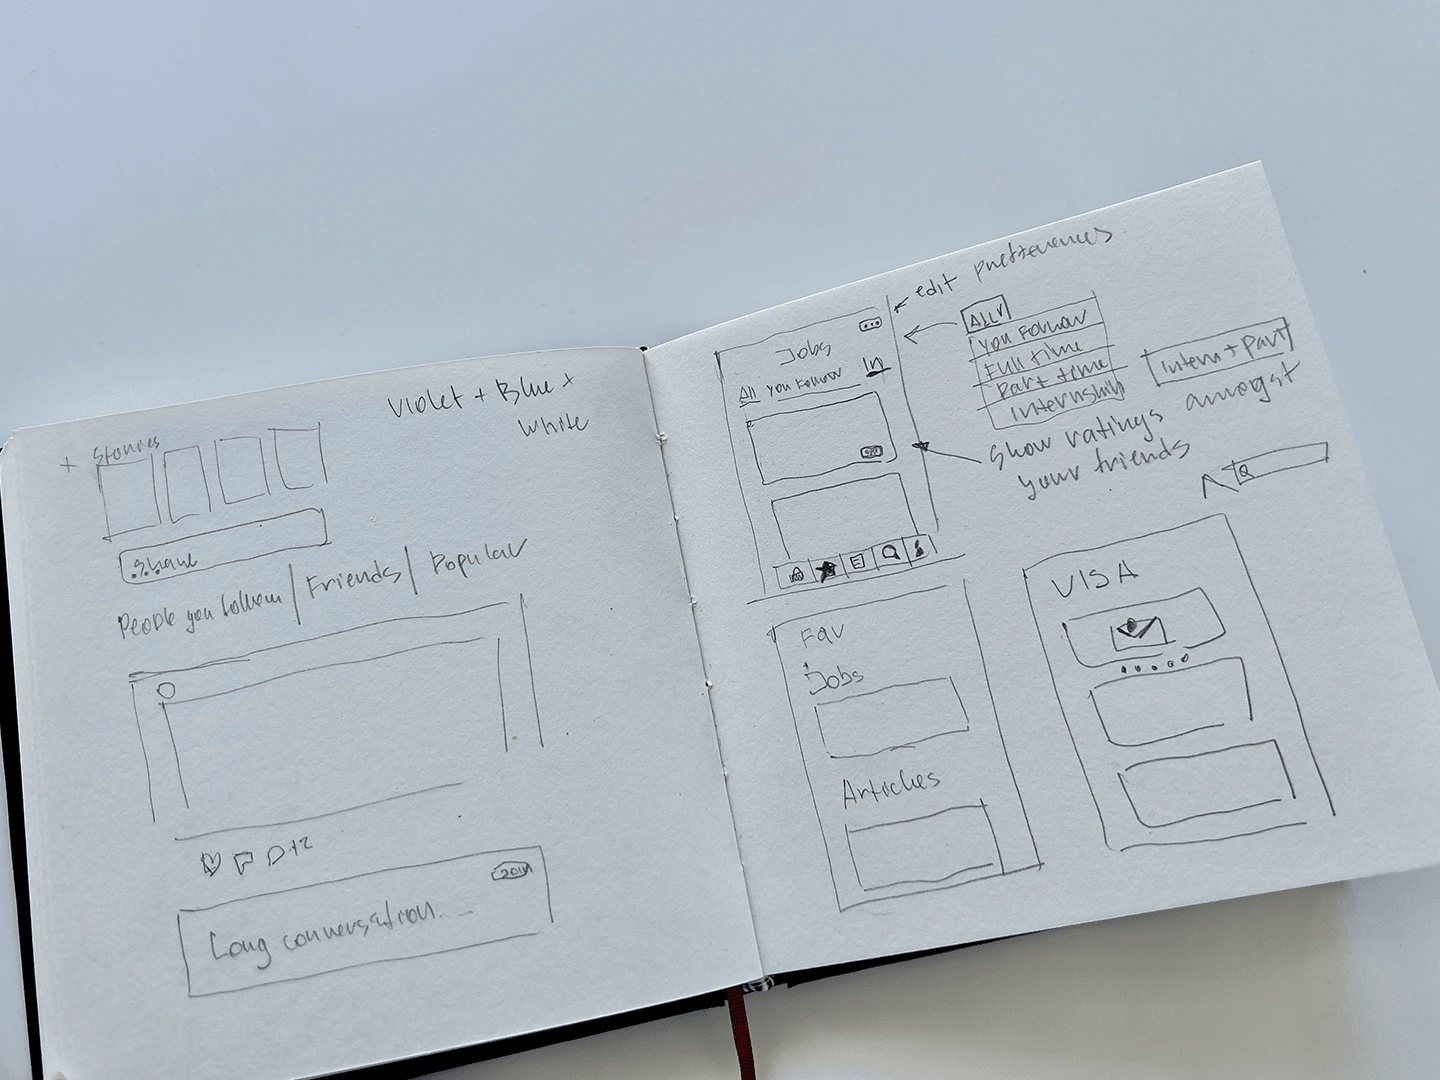 Violet + Blue +
White
+ Stories
Share
People you follow | Friends | Popular
+2
Join
Long conversation...
edit preferences
Jobs
All You Follow In
All v
You Follow
Full time
Part time
Internship
Intern + Part
Show ratings amongst
your friends
Fav
Jobs
Articles
VISA